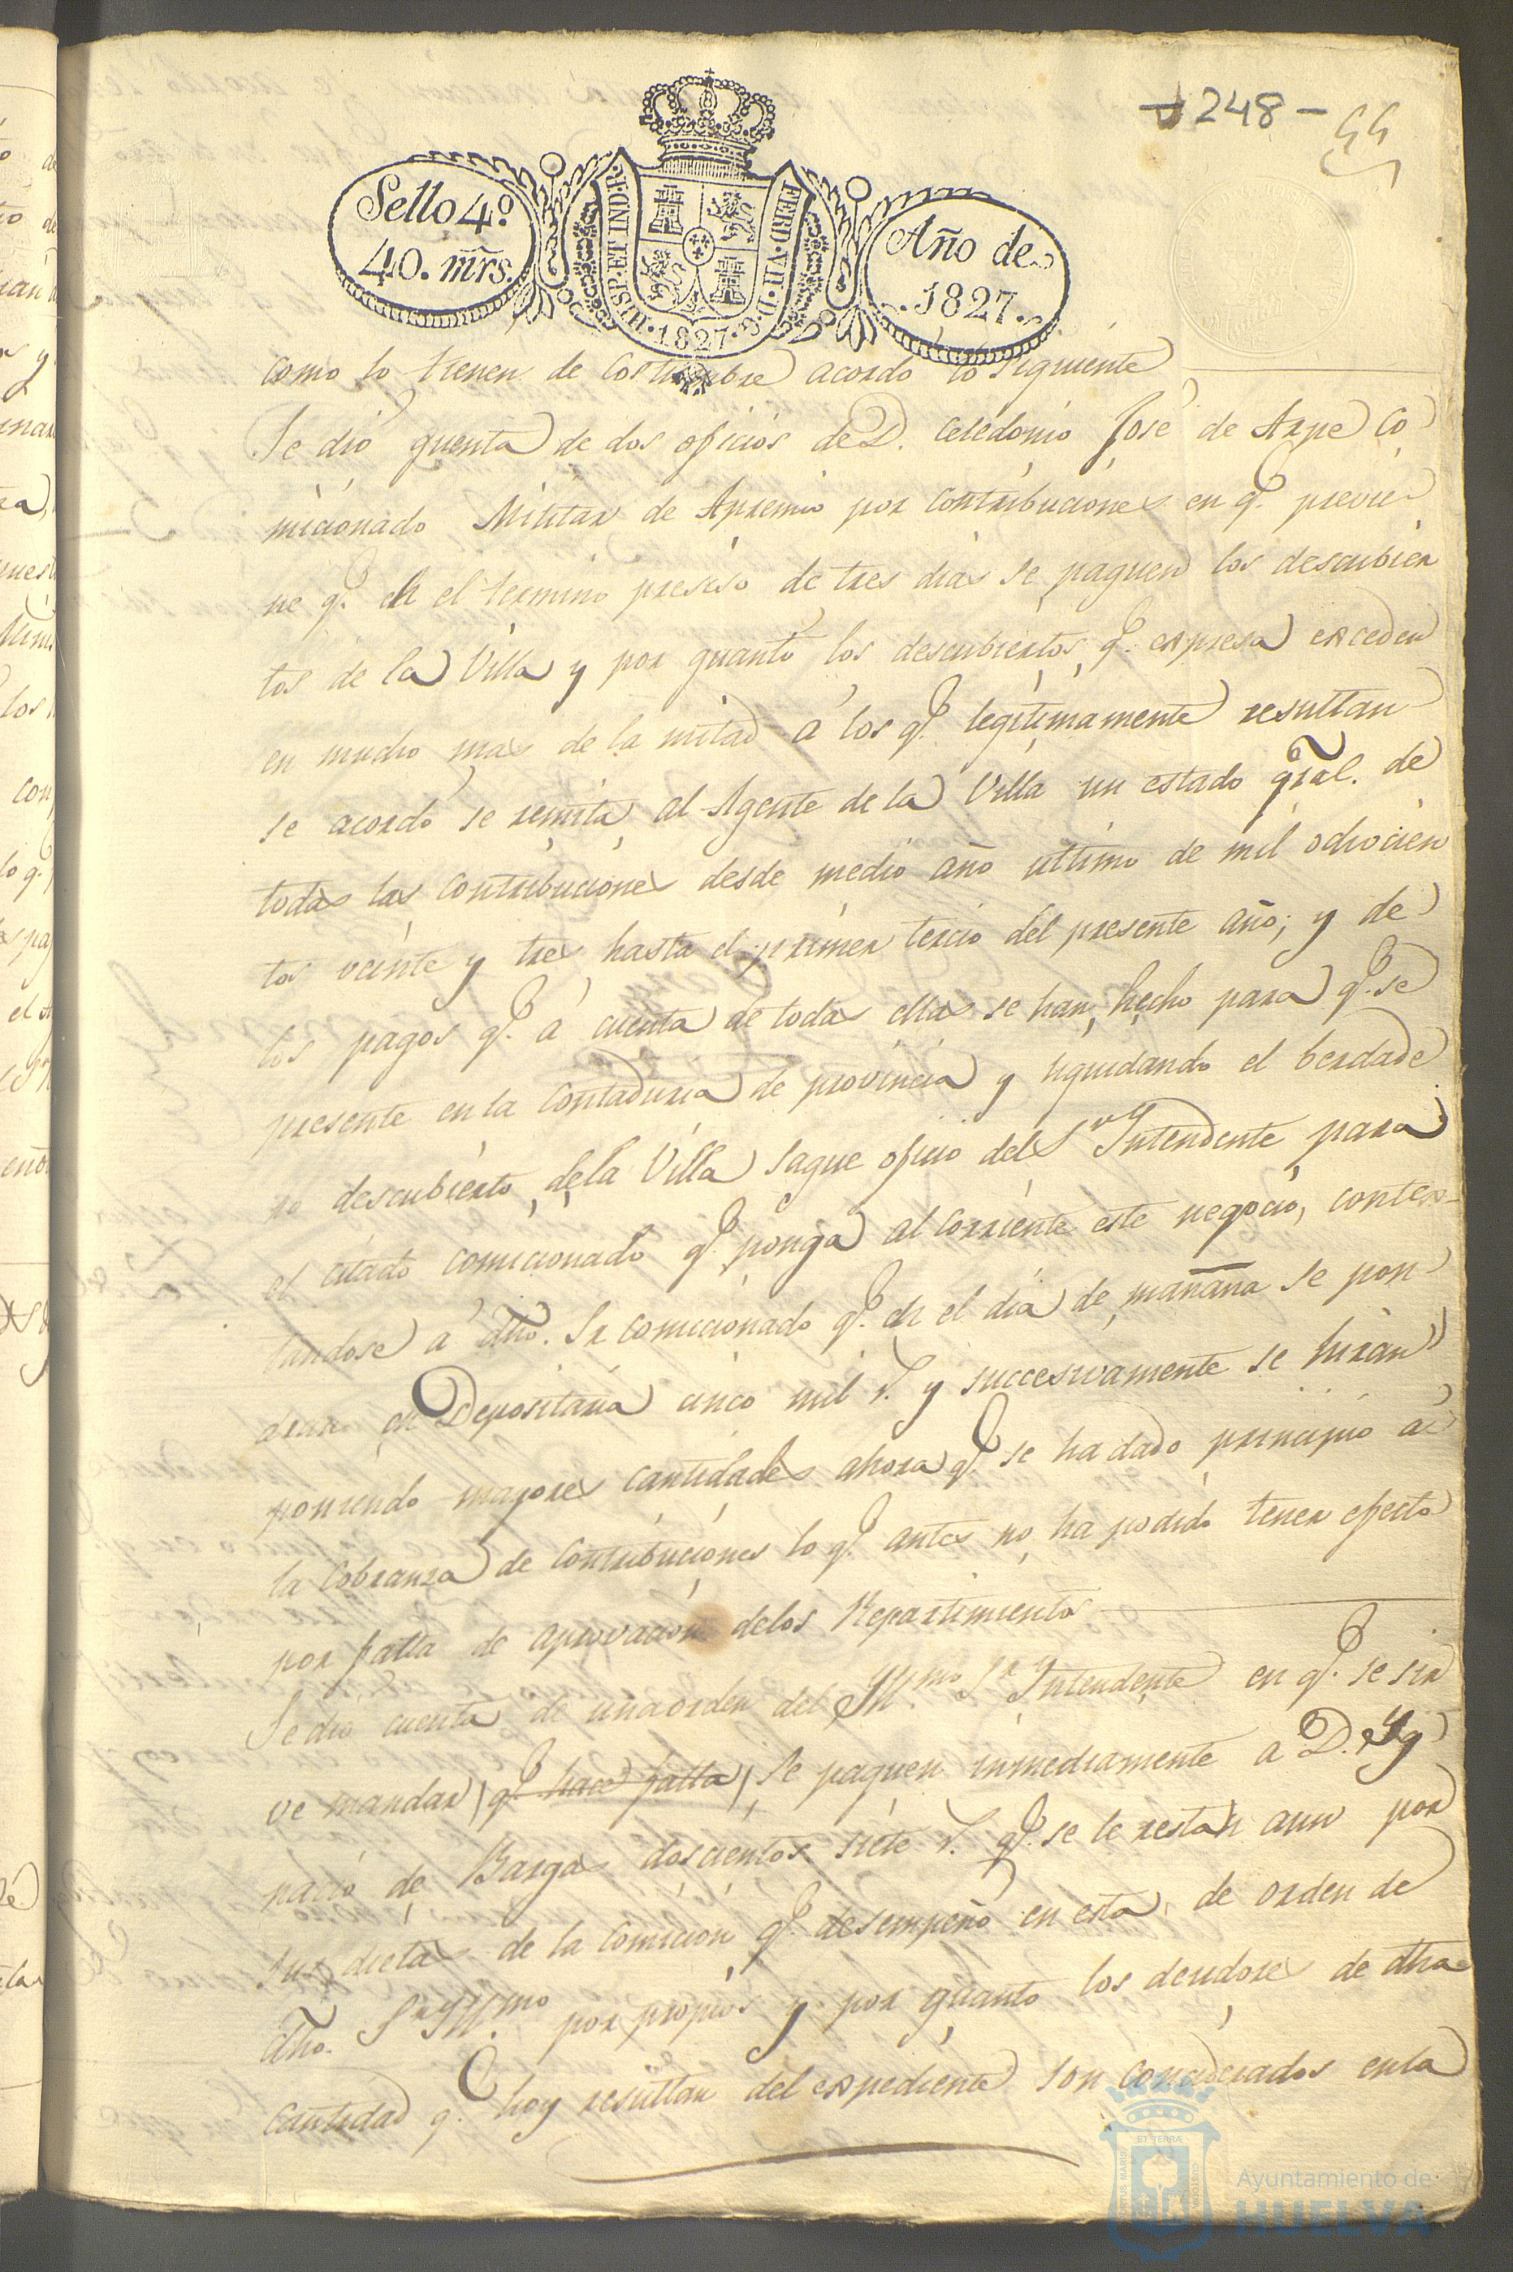 -248-
44
Sello 4º
40. mrs.
HISP. ET IND. R.
FERD. VII. D. G.
1827
Año de
1827.
como lo tienen de costumbre acordó lo siguiente
Se dió quenta de dos oficios de D. Celedonio José de Arpe Co
micionado Militar de Apremio por contribuciones en q.e previe
ne q.e en el termino presiso de tres dias se paguen los descubier
tos de la Villa y por quanto los descubiertos q.e expresa exceden
en mucho mas de la mitad á los q.e legitimamente resultan
se acordó se remita al Agente de la Villa un estado gral. de
todas las contribuciones desde medio año ultimo de mil ochocien
tos veinte y tres hasta el primer tercio del presente año; y de
los pagos q.e á cuenta de todas ellas se han hecho para q.e se
presente en la Contaduria de provincia y liquidando el berdade
ro descubierto de la Villa saque oficio del Sr Yntendente para
el citado comicionado q.e ponga al corriente este negocio, contes-
tandose á dho. Sr comicionado q.e en el dia de mañana se pon
dran en Depositaria cinco mil r.s y succesivamente se hirán
poniendo mayores cantidades ahora q.e se ha dado principio á
la cobranza de Contribuciones lo q.e antes no ha podido tener efecto
por falta de aprovacion de los Repartimientos
Se dió cuenta de una orden del Yll.mo Sr Yntendente en q.e se sir
ve mandar q.e hace falta se paguen inmediamente a D. Yg
nacio de Bargas doscientos siete r.s q.e se le restan aun por
sus dietas de la comicion q.e desempeñó en esta de orden de
dho. Sr Yll.mo por propios y por quanto los deudores de dha
cantidad q.e hoy resultan del expediente son conciderados en la
Ayuntamiento de
HUELVA